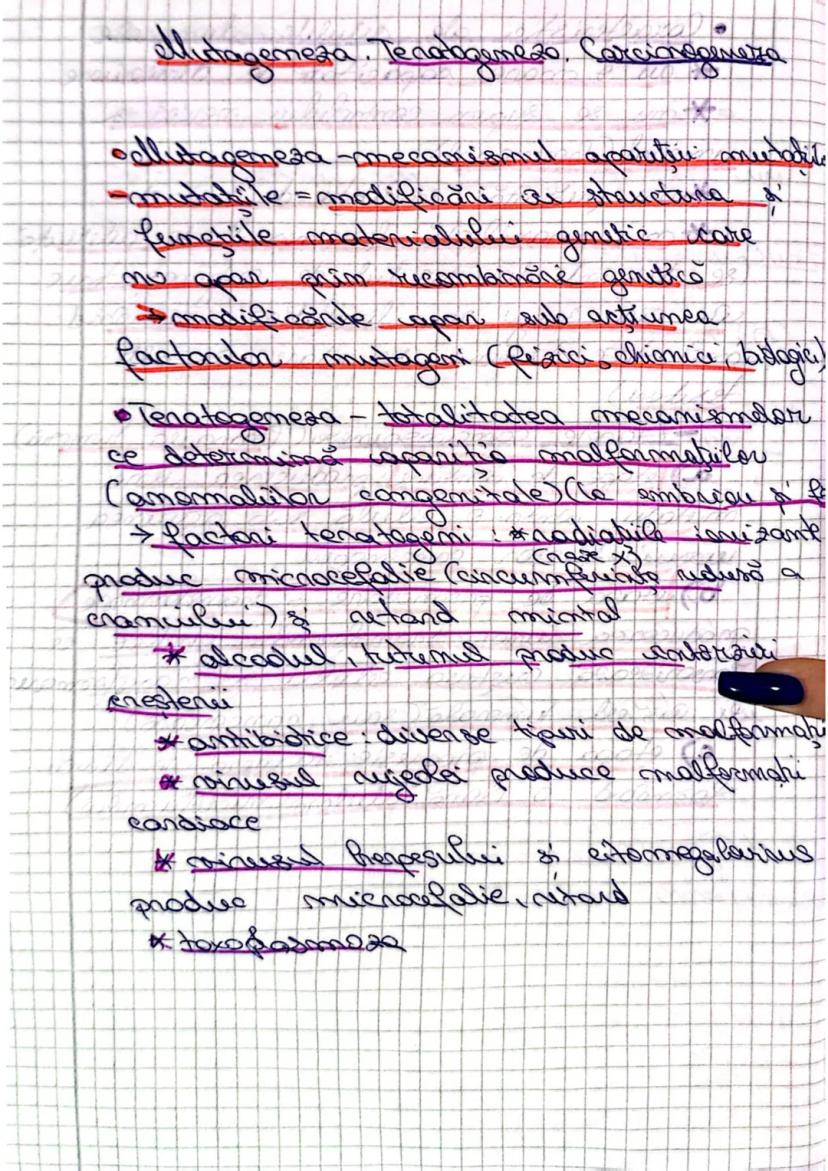 Mutageneza. Teratogeneza. Carcinogeneza
• Mutageneza - mecanismul apariției mutațiil
- mutațiile = modificări în structura și
funcțiile materialului genetic care
nu apar prin recombinare genetică
→ modificările apar sub acțiunea
factorilor mutageni (fizici, chimici, biologici)
• Teratogeneza - totalitatea mecanismelor
ce determină apariția malformațiilor
(anomaliilor congenitale) (la embrion și f
→ factori teratogeni: * radiațiile ionizante
(raze X)
produc microcefalie (circumferința redusă a
craniului) și retard mintal
* alcoolul, tutunul produc întârzieri
creșterii
* antibiotice: diverse tipuri de malformați
* virusul rujeolei produce malformații
cardiace
* virusul herpesului și citomegalovirus
produc microcefalie, retard
* toxoplasmoza